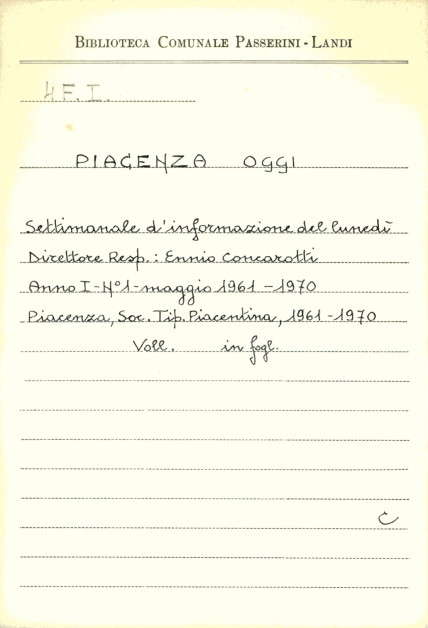 BIBLIOTECA COMUNALE PASSERINI - LANDI
4 F. I.
PIACENZA OGGI
Settimanale d'informazione del lunedì
Direttore Resp.: Ennio Concarotti
Anno I - N° 1 - maggio 1961 - 1970
Piacenza, Soc. Tip. Piacentina, 1961 - 1970
Voll. in fogl.
C